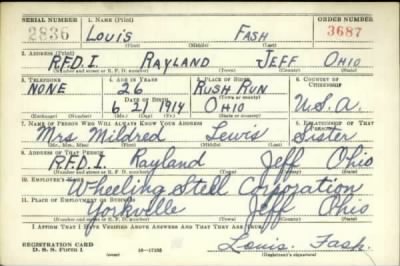 SERIAL NUMBER 1. NAME (Print) ORDER NUMBER
2836 LOUIS FASH 3687
(First) (Middle) (Last)
2. ADDRESS (Print)
R.F.D. I. RAYLAND JEFF OHIO
(Number and street or R. F. D. number) (Town) (County) (State)
3. TELEPHONE 4. AGE IN YEARS 5. PLACE OF BIRTH 6. COUNTRY OF CITIZENSHIP
NONE 26 RUSH RUN
DATE OF BIRTH (Town or county)
6 21 1914 OHIO U.S.A.
(Exchange) (Number) (Mo.) (Day) (Yr.) (State or country)
7. NAME OF PERSON WHO WILL ALWAYS KNOW YOUR ADDRESS 8. RELATIONSHIP OF THAT PERSON
Mrs Mildred Lewis Sister
(Mr., Mrs., Miss) (First) (Middle) (Last)
9. ADDRESS OF THAT PERSON
R.F.D. I. Rayland Jeff Ohio
(Number and street or R. F. D. number) (Town) (County) (State)
10. EMPLOYER'S NAME
Wheeling Steel Corporation
11. PLACE OF EMPLOYMENT OR BUSINESS
Yorkville Jeff Ohio
(Number and street or R. F. D. number) (Town) (County) (State)
I AFFIRM THAT I HAVE VERIFIED ABOVE ANSWERS AND THAT THEY ARE TRUE.
REGISTRATION CARD
D. S. S. Form 1 16-17105 Louis. Fash.
(over) (Registrant's signature)